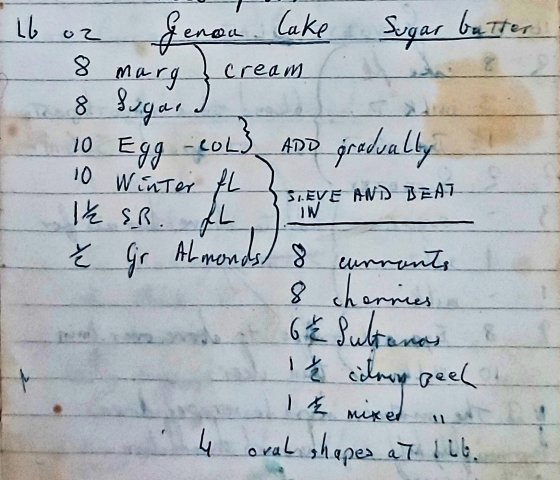 Lb oz Genoa Cake Sugar butter
8 marg } cream
8 Sugar
10 Egg - COL } ADD gradually
10 Winter fL
1½ S.R. fL } SIEVE AND BEAT IN
½ Gr ALmonds
8 currants
8 cherries
6½ Sultanas
1½ peel
1½ mixed "
4 oval shapes aT 1 Lb.